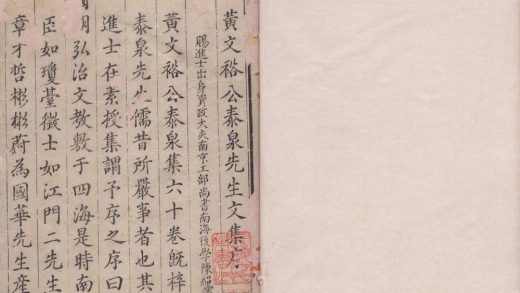 黃文裕公泰泉先生文集序
賜進士出身資政大夫南京工部尚書南海後學陳紹
黃文裕公泰泉集六十卷旣梓
泰泉先生儒昔所嚴事者也其
進士在素授集謂予序之序曰
弘治文教敷于四海是時南
臣如瓊臺徵士如江門二先生
章才哲彬彬蔚為國華先生產